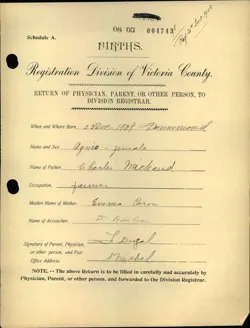 Schedule A.
BIRTHS.
Registration Division of Victoria County.
RETURN OF PHYSICIAN, PARENT, OR OTHER PERSON, TO
DIVISION REGISTRAR.
When and Where Born, Drummond
Name and Sex, Agnes - female
Name of Father, Charles Michaud
Occupation, farmer
Maiden Name of Mother, Emma Caron
Name of Accoucher,
Signature of Parent, Physician,
or other person, and Post
Office Address,
NOTE. -- The above Return is to be filled in carefully and accurately by
Physician, Parent, or other person, and forwarded to the Division Registrar.